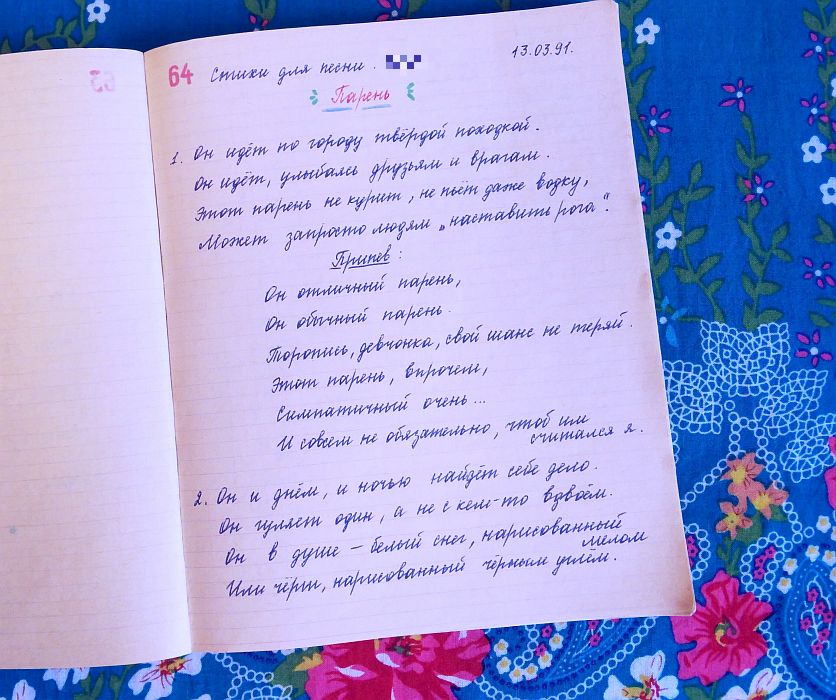 63
64 Стихи для песни. 13.03.91.
Парень
1. Он идёт по городу твёрдой походкой.
Он идёт, улыбаясь друзьям и врагам.
Этот парень не курит, не пьёт даже водку,
Может запросто людям „наставить рога".
Припев:
Он отличный парень,
Он обычный парень.
Торопись, девчонка, свой шанс не теряй.
Этот парень, впрочем,
Симпатичный очень...
И совсем не обязательно, чтоб им
считался я.
2. Он и днём, и ночью найдёт себе дело.
Он гуляет один, а не с кем-то вдвоём.
Он в душе – белый снег, нарисованный
мелом
Или чёрт, нарисованный чёрным углём.